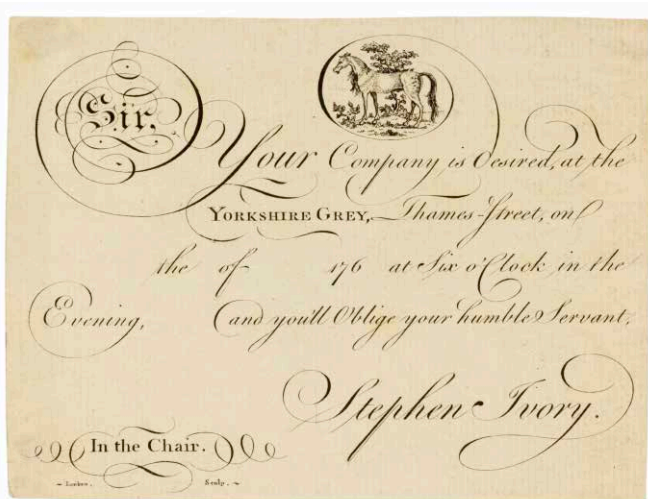 Sir.
Your Company is Desired, at the
YORKSHIRE GREY, Thames-Street, on
the of 176 at Six o'Clock in the
Evening, and you'll Oblige your humble Servant,
Stephen Ivory.
In the Chair.
Sculp.